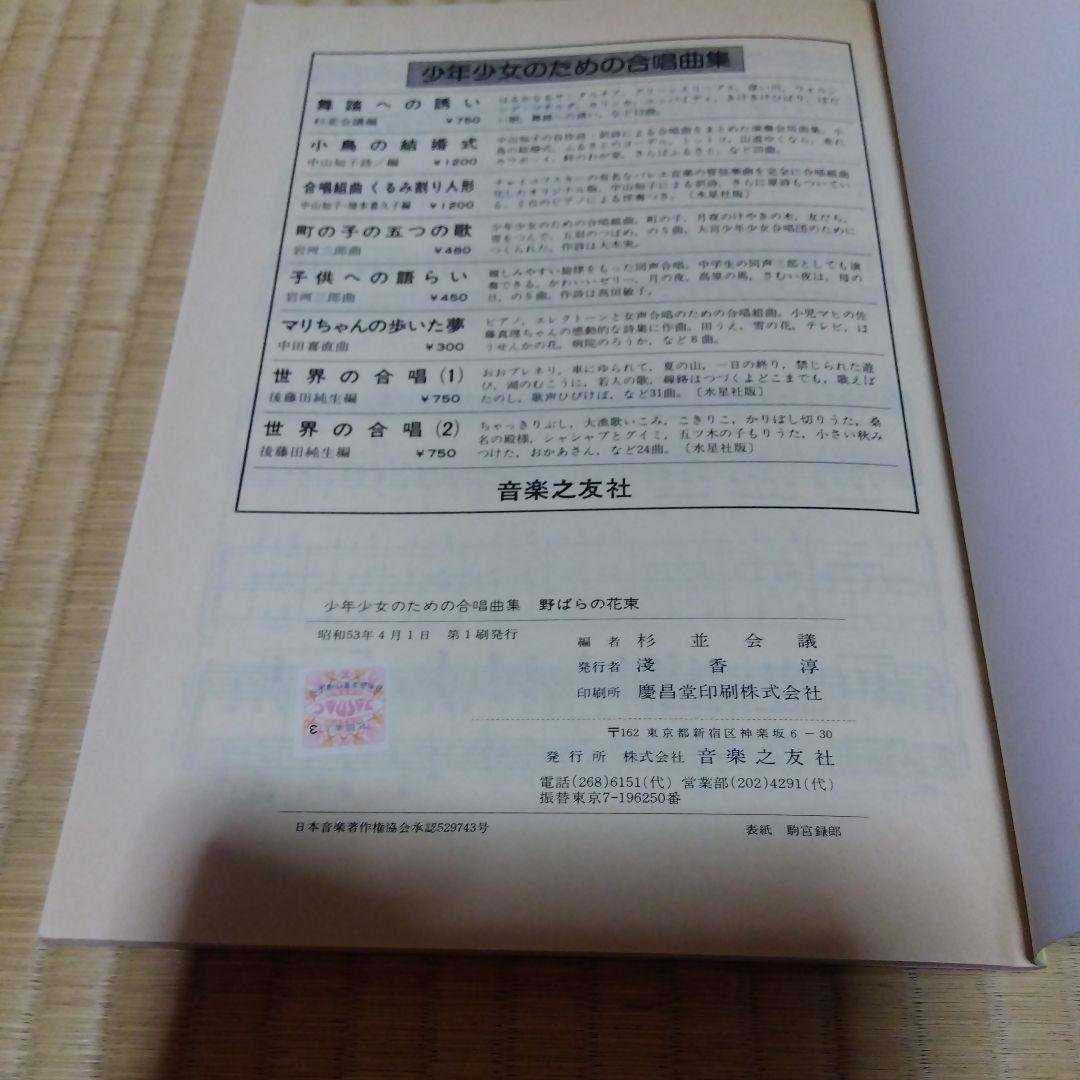 少年少女のための合唱曲集
舞踏への誘い
杉並会議編 ¥750
など13曲。
小鳥の結婚式
中山知子詩／編 ¥1200
中山知子の自作詩・訳詩による合唱曲をまとめた演奏会用曲集。小
鳥の結婚式，ふるさとのヨーデル，トットコ，山道ゆくなら，
カウボーイ，きらばふるさと，など
合唱組曲 くるみ割り人形
中山知子・増本喜久子編 ¥1200
チャイコフスキーの有名なバレエ音楽の管弦楽曲を完全に合唱組曲
化したオリジナル版。中山知子による訳詩。さらに原詩もついてい
る。2台のピアノによる伴奏つき。〔水星社版〕
町の子の五つの歌
岩河三郎曲 ¥480
少年少女のための合唱組曲。町の子，月夜のけやきの木，友だち，
雪をつんで，五羽のつばめ，の5曲。大宮少年少女合唱団のために
つくられた。作詩は大木実。
子供への語らい
岩河三郎曲 ¥450
親しみやすい旋律をもった同声合唱。中学生の同声三部としても演
奏できる。かわいいゼリー，月の夜，高原の馬，さむい夜は，母の
日，の5曲。作詩は高田敏子。
マリちゃんの歩いた夢
中田喜直曲 ¥300
ピアノ，エレクトーンと女声合唱のための合唱組曲。小児マヒの佐
藤真理ちゃんの感動的な詩集に作曲。田うえ，雪の花，テレビ，ほ
うせんかの花，病院のろうか，など8曲。
世界の合唱(1)
後藤田純生編 ¥750
おおブレネリ，車にゆられて，夏の山，一日の終り，禁じられた遊
び，湖のむこうに，若人の歌，線路はつづくよどこまでも，歌えば
たのし，歌声ひびけば，など31曲。〔水星社版〕
世界の合唱(2)
後藤田純生編 ¥750
ちゃっきりぶし，大漁歌いこみ，こきりこ，かりぼし切りうた，桑
名の殿様，シャシャブとグイミ，五ツ木の子もりうた，小さい秋み
つけた，おかあさん，など24曲。〔水星社版〕
音楽之友社
少年少女のための合唱曲集 野ばらの花束
昭和53年4月1日 第1刷発行
編者 杉並会議
発行者 淺香淳
印刷所 慶昌堂印刷株式会社
〒162 東京都新宿区神楽坂6－30
発行所 株式会社 音楽之友社
電話(268)6151(代) 営業部(202)4291(代)
振替東京7-196250番
JASRAC
3
日本音楽著作権協会承認529743号
表紙 駒宮録郎